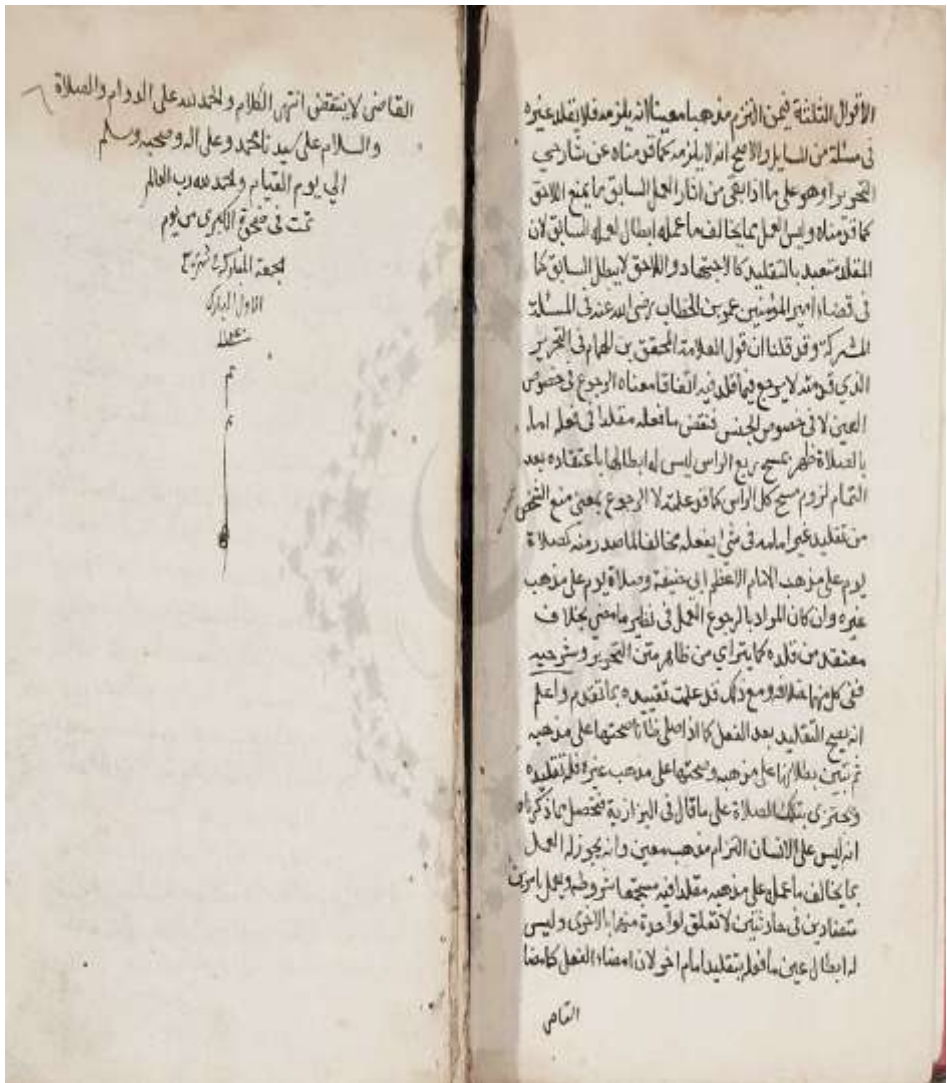 الأقوال الثلثة فيمن التزم مذهبا معينا انه يلزمه فلا يقلد غيره
في مسئلة من المسايل والاصح انه لا يلزمه كما قدمناه عن شارحي
التحرير او هو على ما اذا بقي من اثار العمل السابق ما يمنع اللاحق
كما قدمناه وليس العمل بما يخالف ما عمله ابطال لعمله السابق لان
المقلد متعبد بالتقليد كالاجتهاد واللاحق لا يبطل السابق كما
في قضاء امير المؤمنين عمر بن الخطاب رضي الله عنه في المسئلة
المشركة وقد قلنا ان قول العلامة المحقق بن الهمام في التحرير
الذي قدمته لا يرجع فيما قلد فيه اتفاقا معناه الرجوع في خصوص
العين لا في خصوص الجنس فنقض ما فعله مقلدا في فعله امامه
بالصلاة ظهر بمسح ربع الراس ليس له ابطالها باعتقاده بعد
التمام لزوم مسح كل الراس كما قد علمته لا الرجوع بمعنى منع الشخص
من تقليد غير امامه في شي يفعله مخالفا لما صدر منه كصلاة
يوم على مذهب الامام الاعظم ابي حنيفة وصلاة يوم على مذهب
غيره وان كان المراد بالرجوع العمل في نظير ما مضى بخلاف
معتقد من قلده كما يتراي من ظاهر متن التحرير وشرحيه
ففي كل منهما خلاف ومع ذلك قد علمت تقييده بما تقدم واعلم
انه يصح التقليد بعد الفعل كما اذا صلى ظانا صحتها على مذهبه
ثم تبين بطلانها على مذهبه وصحتها على مذهب غيره فله تقليده
ويجتزى بتلك الصلاة على ما قال في البزازية فتحصل بما ذكرناه
انه ليس على الانسان التزام مذهب معين وانه يجوز له العمل
بما يخالف ما عمله على مذهبه مقلدا فيه مستجمعا شروطه ويعمل بامرين
متضادين في حادثتين لا تعلق لواحدة منهما بالاخرى وليس
له ابطال عين ما فعله بتقليد امام اخر لان امضاء الفعل كامضا
القاضي
القاضي لا ينتقض انتهى الكلام والحمد لله على الدوام والصلاة
والسلام على سيدنا محمد وعلى اله وصحبه وسلم
الي يوم القيام والحمد لله رب العالم
تمت في ضحوة الكبرى من يوم
الجعة المباركة شهر ربيع
الاول المبارك
تم